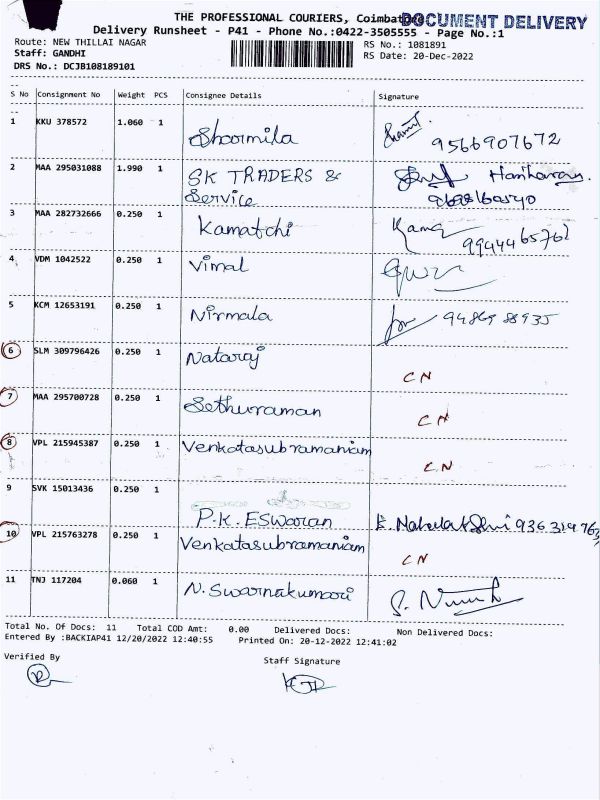 THE PROFESSIONAL COURIERS, Coimbatore
DOCUMENT DELIVERY
Delivery Runsheet - P41 - Phone No.:0422-3505555 - Page No.:1
Route: NEW THILLAI NAGAR RS No.: 1081891
Staff: GANDHI RS Date: 20-Dec-2022
DRS No.: DCJB108189101
S No Consignment No Weight PCS Consignee Details Signature
1 KKU 378572 1.060 1 Shoormila 9566907672
2 MAA 295031088 1.990 1 SK TRADERS & Hariharan
Service
3 MAA 282732666 0.250 1 Kamatchi Kama 9944465762
4 VDM 1042522 0.250 1 Vimal
5 KCM 12653191 0.250 1 Nirmala
6 SLM 309796426 0.250 1 Nataraj CN
7 MAA 295700728 0.250 1 Sethuraman CN
8 VPL 215945387 0.250 1 Venkatasubramaniam CN
9 SVK 15013436 0.250 1
P.K. ESWaran
10 VPL 215763278 0.250 1 Venkatasubramaniam CN
11 TNJ 117204 0.060 1 N. Swarnakumari
Total No. Of Docs: 11 Total COD Amt: 0.00 Delivered Docs: Non Delivered Docs:
Entered By :BACKIAP41 12/20/2022 12:40:55 Printed On: 20-12-2022 12:41:02
Verified By Staff Signature